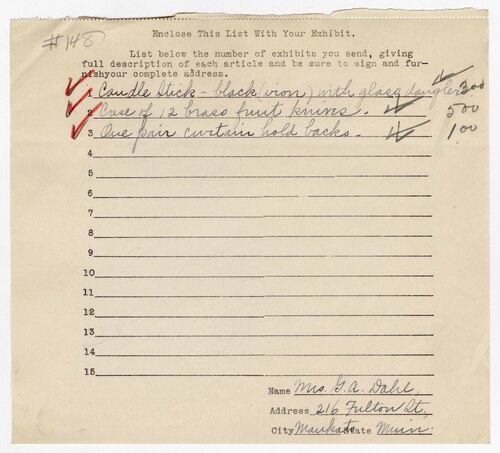 #148
Enclose This List With Your Exhibit.
List below the number of exhibits you send, giving
full description of each article and be sure to sign and fur-
nishyour complete address.
1 Candle Stick - black (iron) with glass danglers 300
2 Case of 12 brass fruit knives. 500
3 One pair curtain hold backs. 1.00
4
5
6
7
8
9
10
11
12
13
14
15
Name Mrs. G. A. Dahl,
Address 216 Fulton St.,
City Mankato State Minn.